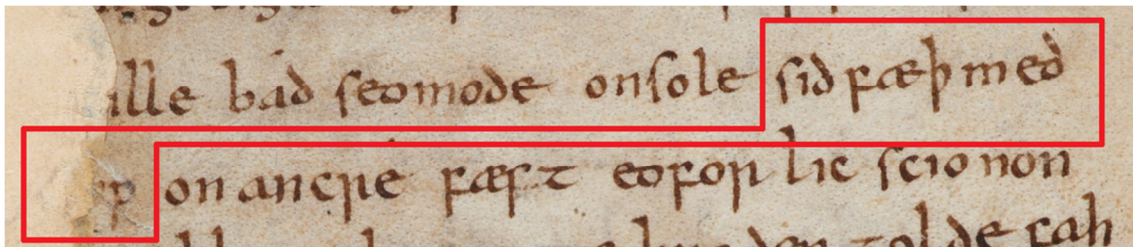 ille bad seomode onsole sidfæþmed
ip on ancre fæst eofor lic scionon
den golde fah